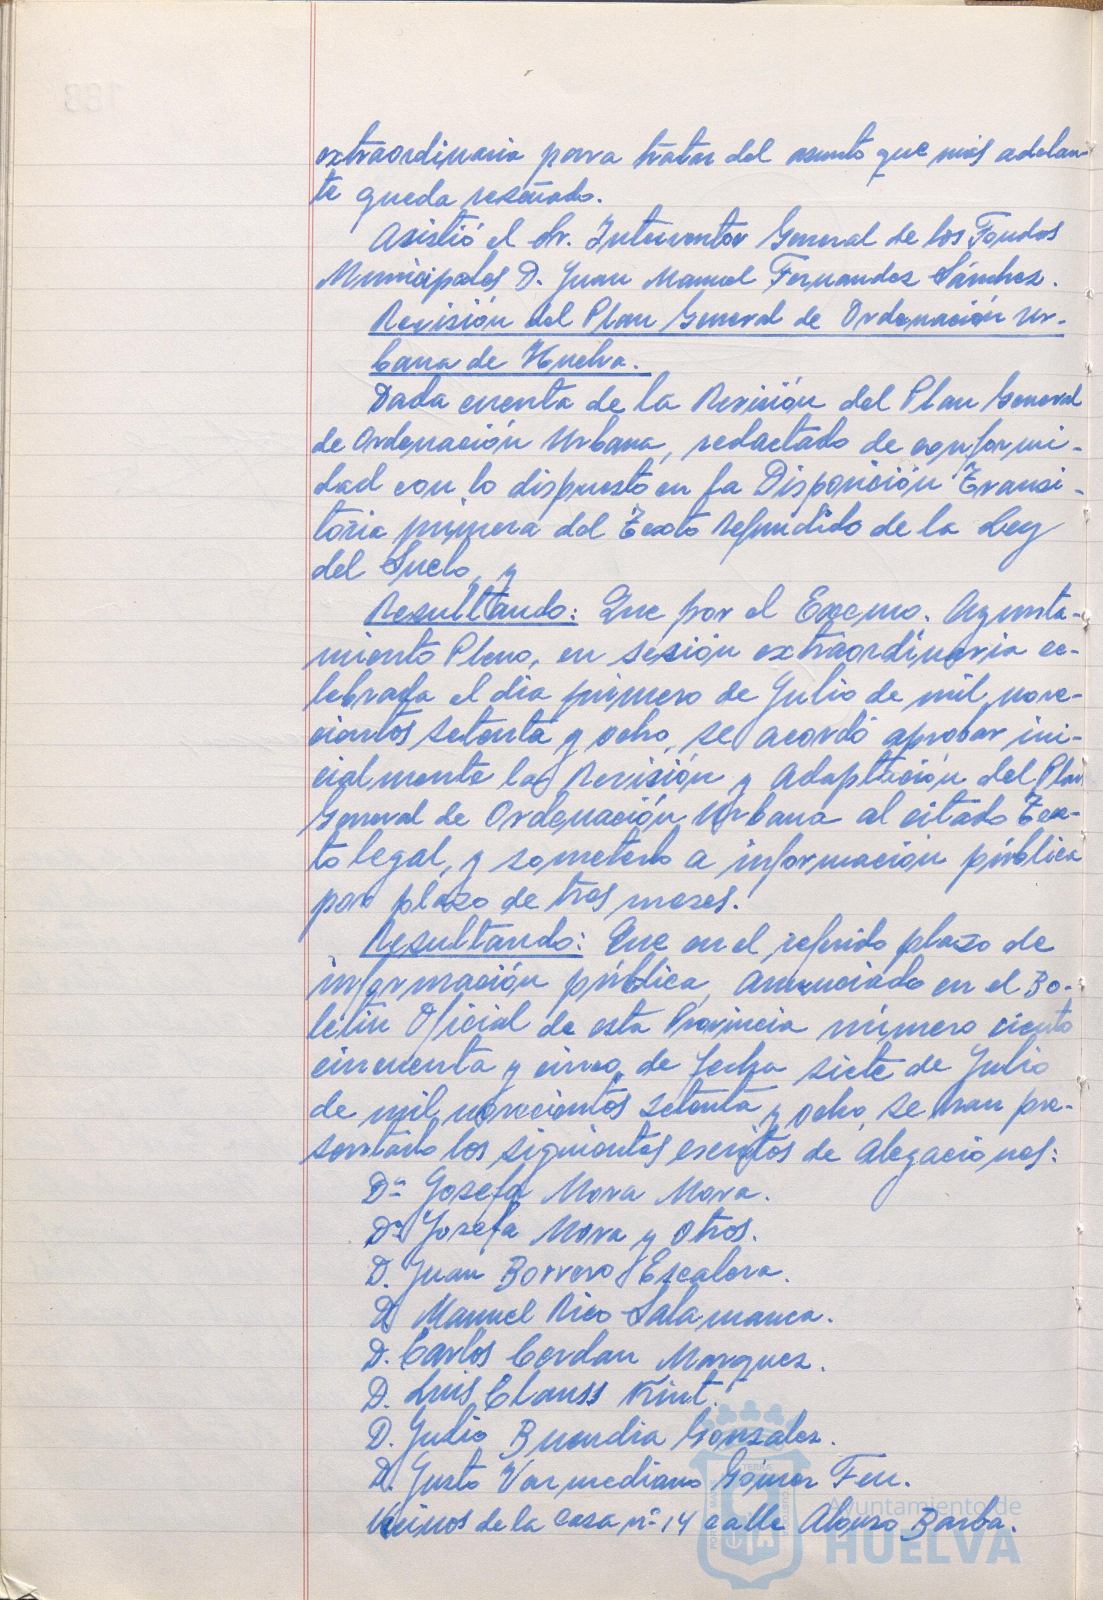 extraordinaria para tratar del asunto que más adelan-
te queda reseñado.
Asistió el Sr. Interventor General de los Fondos
Municipales D. Juan Manuel Fernandez Sánchez.
Revisión del Plan General de Ordenación Ur-
bana de Huelva.
Dada cuenta de la Revisión del Plan General
de Ordenación Urbana, redactado de conformi-
dad con lo dispuesto en la Disposición Transi-
toria primera del Texto Refundido de la Ley
del Suelo, y
Resultando: Que por el Excmo. Ayunta-
miento Pleno, en sesión extraordinaria ce-
lebrada el dia primero de Julio de mil nove-
cientos setenta y ocho, se acordó aprobar ini-
cialmente la Revisión y Adaptación del Plan
General de Ordenación Urbana al citado Tex-
to legal, y someterlo a información pública
por plazo de tres meses.
Resultando: Que en el referido plazo de
información pública, anunciado en el Bo-
letin Oficial de esta Provincia número ciento
cincuenta y cinco, de fecha siete de Julio
de mil novecientos setenta y ocho, se han pre-
sentado los siguientes escritos de alegaciones:
Dª Josefa Mora Mora.
Dª Josefa Mora y otros.
D. Juan Borrero Escalera.
D. Manuel Rico Salamanca.
D. Carlos Cordan Marquez.
D. Luis Clauss Kint.
D. Julio Buendia Gonzalez.
D. Justo Gómez Fer.
Vecinos de la casa nº 14 calle Alonso Barba.
Ayuntamiento de
HUELVA
183